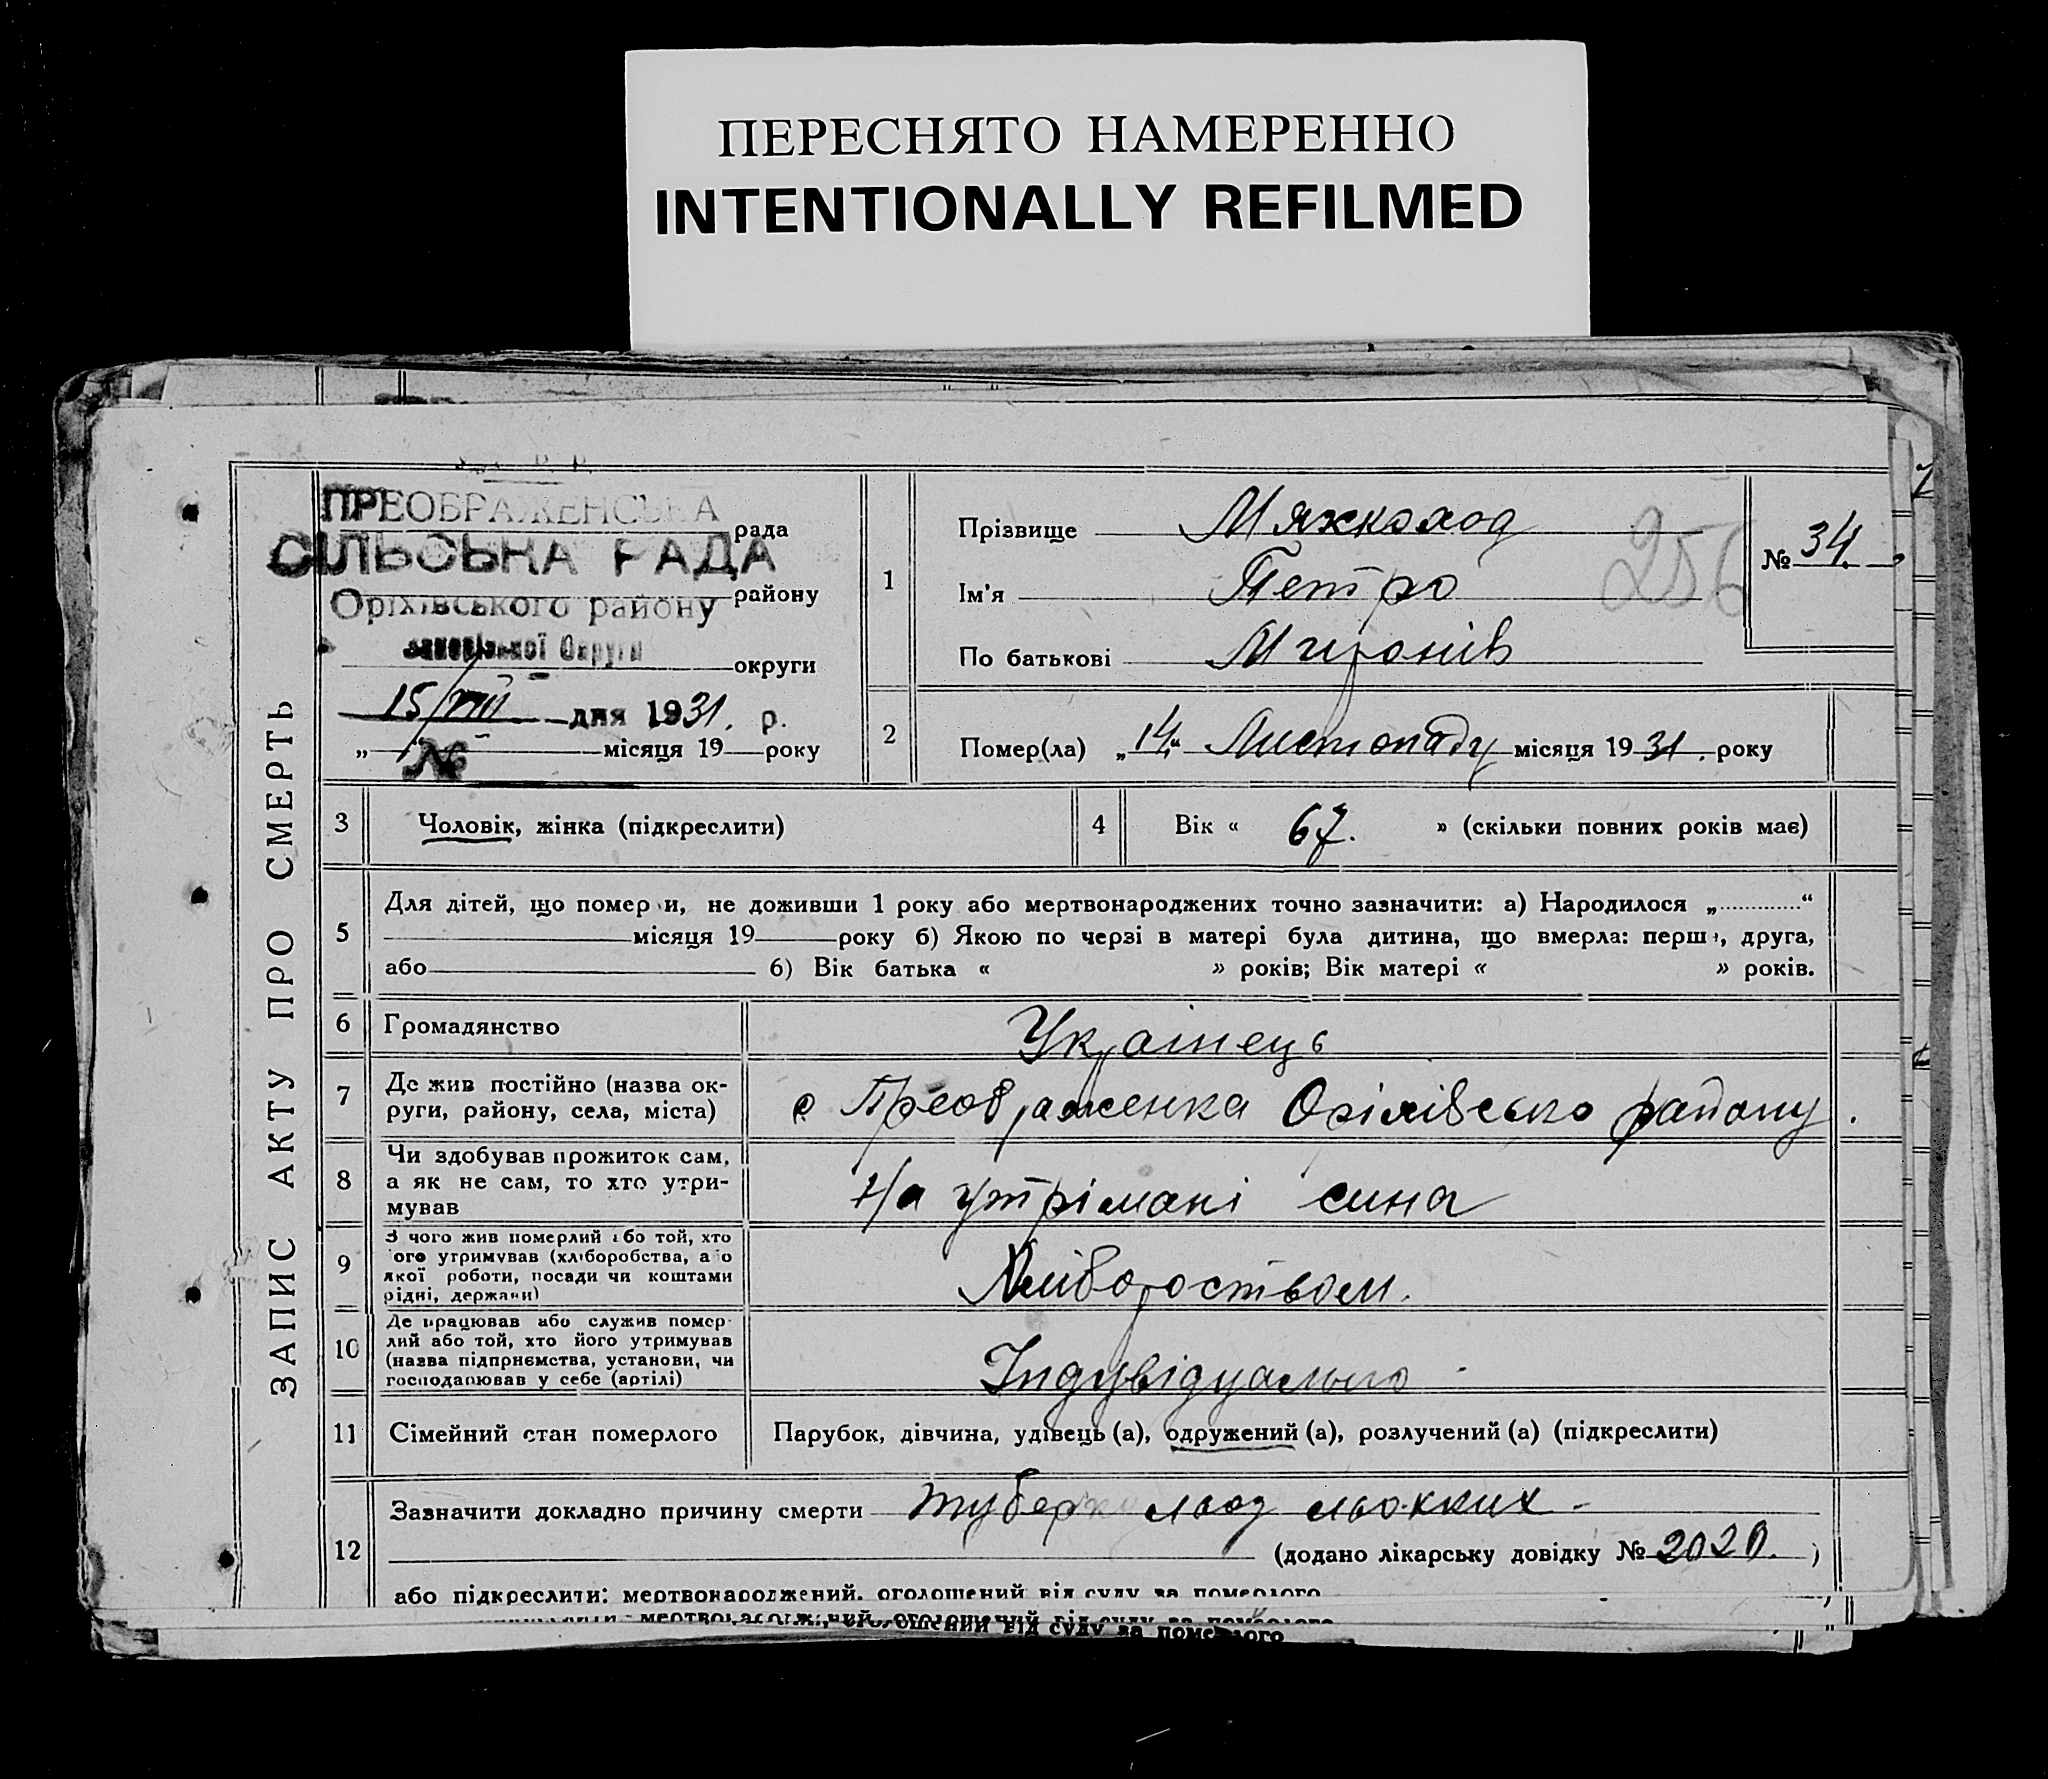 ПЕРЕСНЯТО НАМЕРЕННО
INTENTIONALLY REFILMED
ЗАПИС АКТУ ПРО СМЕРТЬ
ПРЕОБРАЖЕНСЬКА рада
СІЛЬСЬКА РАДА
Оріхівського району району
Округи
округи
15/ дня 1931. р.
„ місяця 19 року
№
1
Прізвище Мяхкоход
Ім'я Петро
По батькові Миронів
256
№ 34.
2 Помер(ла) „14“ Листопаду місяця 1931. року
3 Чоловік, жінка (підкреслити)
4 Вік « 67. » (скільки повних років має)
5
Для дітей, що помер и, не доживши 1 року або мертвонароджених точно зазначити: а) Народилося „ “
місяця 19 року б) Якою по черзі в матері була дитина, що вмерла: перш , друга,
або б) Вік батька « » років; Вік матері « » років.
6 Громадянство Украінець
7 Де жив постійно (назва ок-
руги, району, села, міста)
с Преображенка Оріхівсько району.
8 Чи здобував прожиток сам,
а як не сам, то хто утри-
мував
На утрімані сина
9 З чого жив померлий або той, хто
ого утримував (хліборобства, а о
якої роботи, посади чи коштами
рідні, держави)
Хлібороством.
10 Де працював або служив помер-
лий або той, хто його утримував
(назва підприємства, установи, чи
господарював у себе (артілі)
Індувідуально
11 Сімейний стан померлого Парубок, дівчина, удівець (а), одружений (а), розлучений (а) (підкреслити)
12 Зазначити докладно причину смерти
(додано лікарську довідку № 2020. )
або підкреслити: мертвонароджений, оголошений від суду за померлого
мертвонароджений, оголошений від суду за померлого
оголошений від суду за померлого